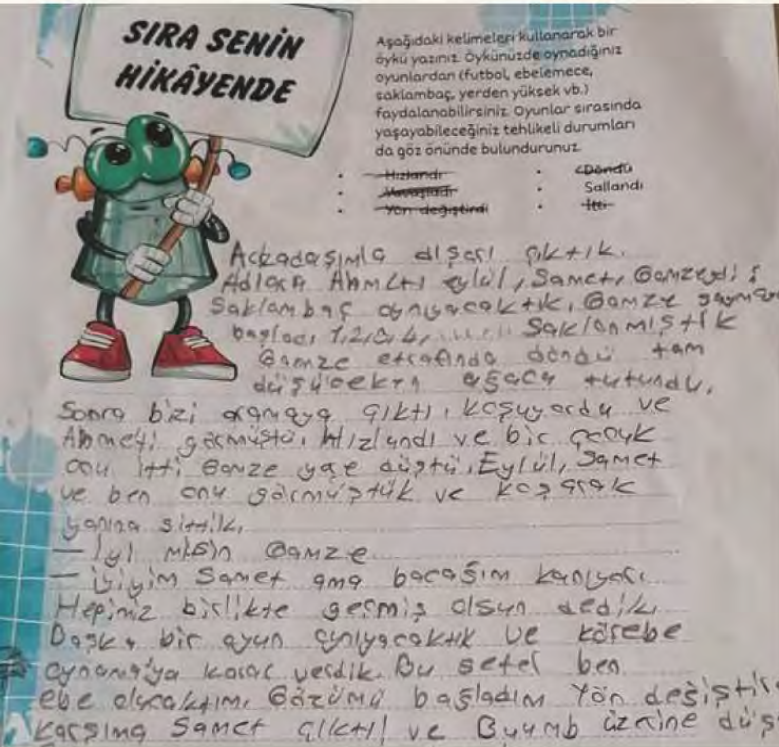 SIRA SENİN
HİKÂYENDE
Aşağıdaki kelimeleri kullanarak bir
öykü yazınız. Öykünüzde oynadığınız
oyunlardan (futbol, ebelemece,
saklambaç, yerden yüksek vb.)
faydalanabilirsiniz. Oyunlar sırasında
yaşayabileceğiniz tehlikeli durumları
da göz önünde bulundurunuz.
• Hızlandı • Döndü
• Yavaşladı • Sallandı
• Yön değiştirdi • İtti
Arkadaşımla dışarı çıktık.
Adları Ahmetı eylül, Samet, Gamzeydi;
Saklambaç oynıyacaktık, Gamze saymay
başladı 1,2,3,4,....... Saklanmıştık
Gamze etrafında döndü tam
düşücekkn ağacı tutundu,
Sonra bizi aramaya çıktı, koşuyordu ve
Ahmeti görmüştü, Hızlandı ve bir çocuk
onu itti Gamze yae düştü, Eylül, Samet
ve ben onu görmüştük ve koşarak
yanına sittik,
— İyi misin Gamze
— iyiyim Samet ama bacağım kanıyor.
Hepimiz birlikte geçmiş olsun dedik,
Başka bir oyun oynıyacaktık ve körebe
oynama'ya karar verdik. Bu sefer ben
ebe olucaktım, Gözümü bağladım Yön değiştir
karşıma Samet çıktı ve Buumb üzerine düş